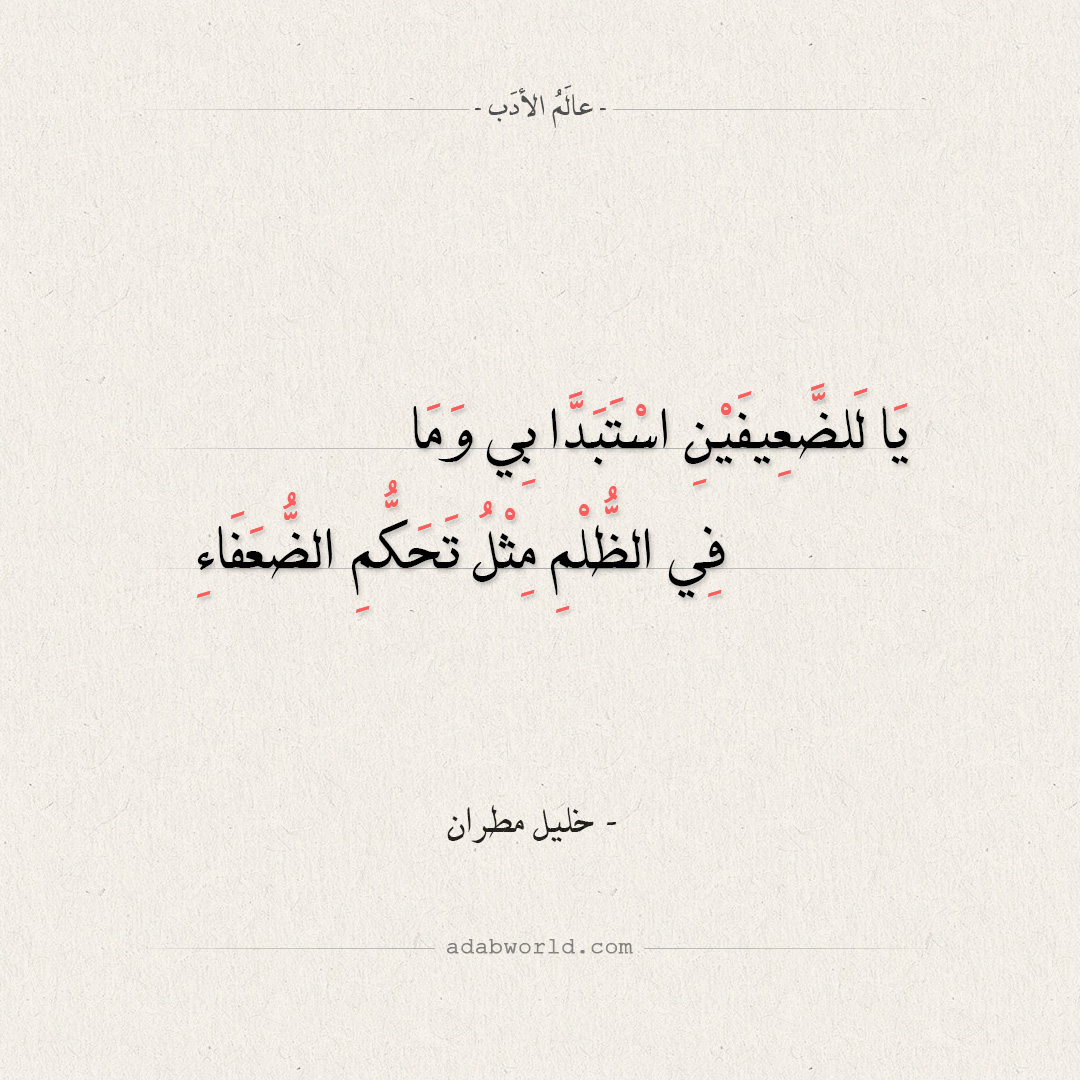 - عالَمُ الأدَب -
يَا لَلضَّعِيفَيْنِ اسْتَبَدَّا بِي وَمَا
فِي الظُّلْمِ مِثْلُ تَحَكُّمِ الضُّعَفَاءِ
- خليل مطران
adabworld.com